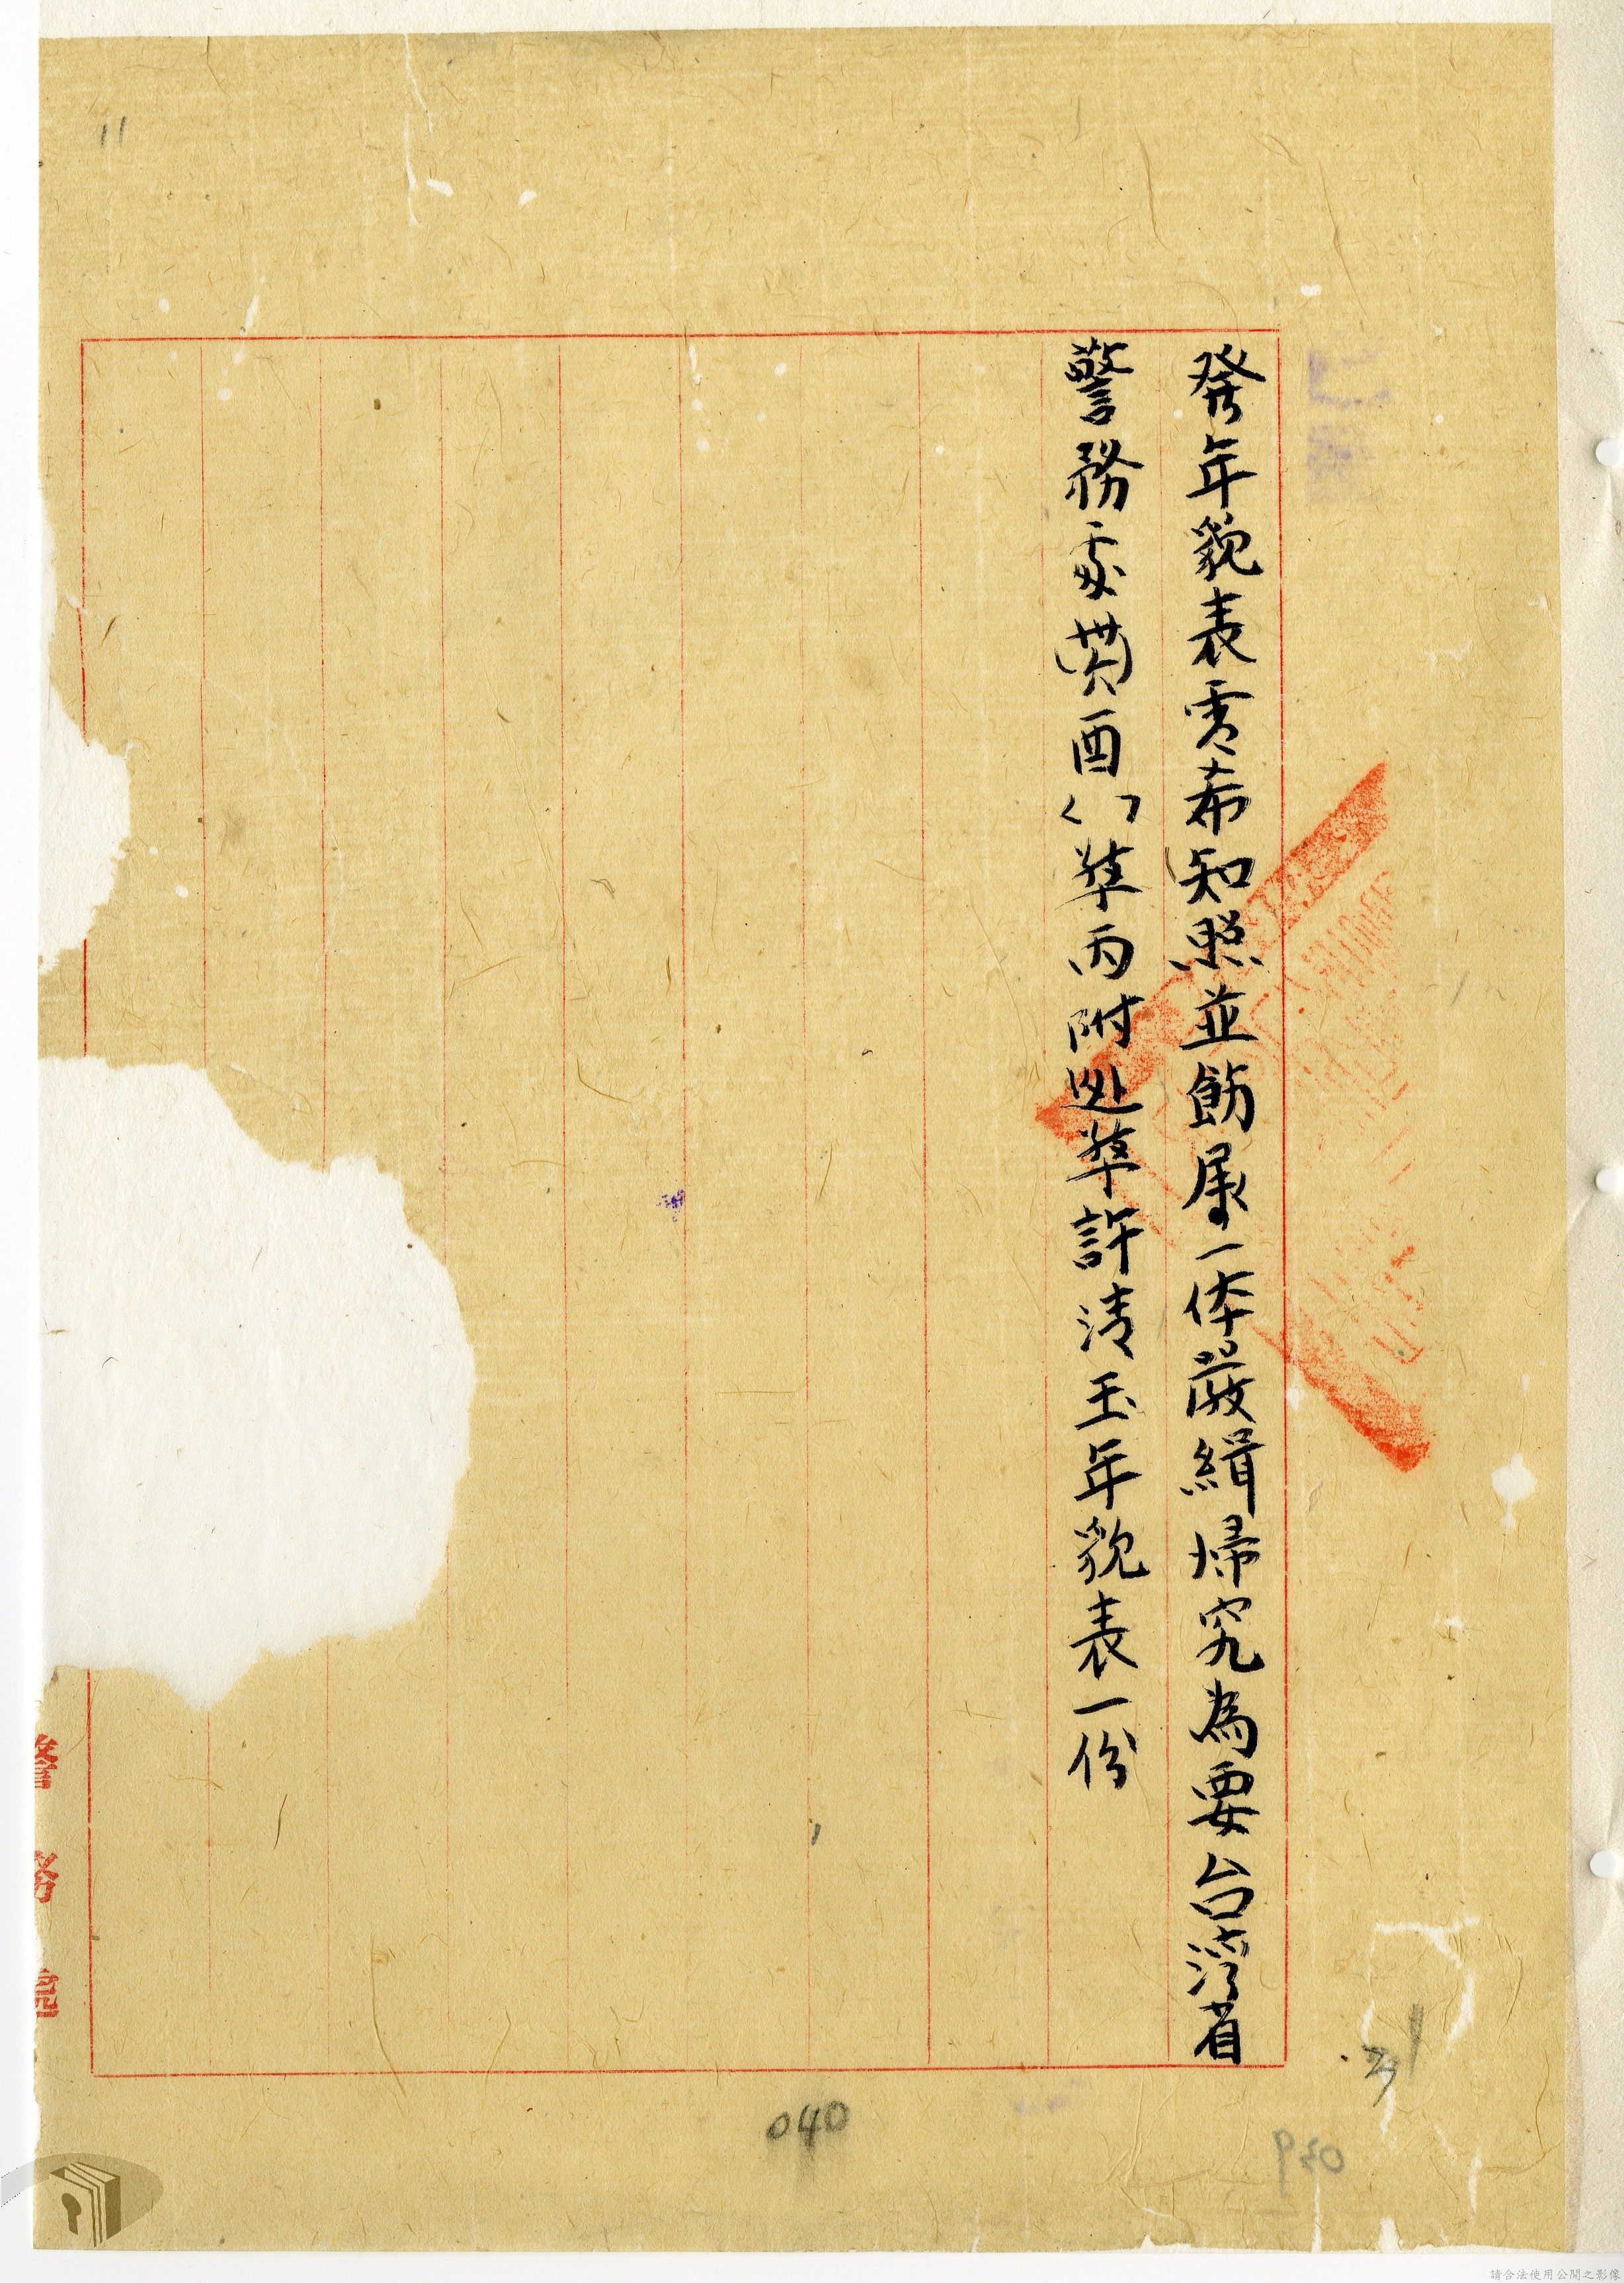 發年貌表電希知照並飭屬一体嚴緝歸究為要台灣省
警務處(卅六)酉(  )警丙附逃警許清玉年貌表一份
警務處
11
040
請合法使用公開之影像